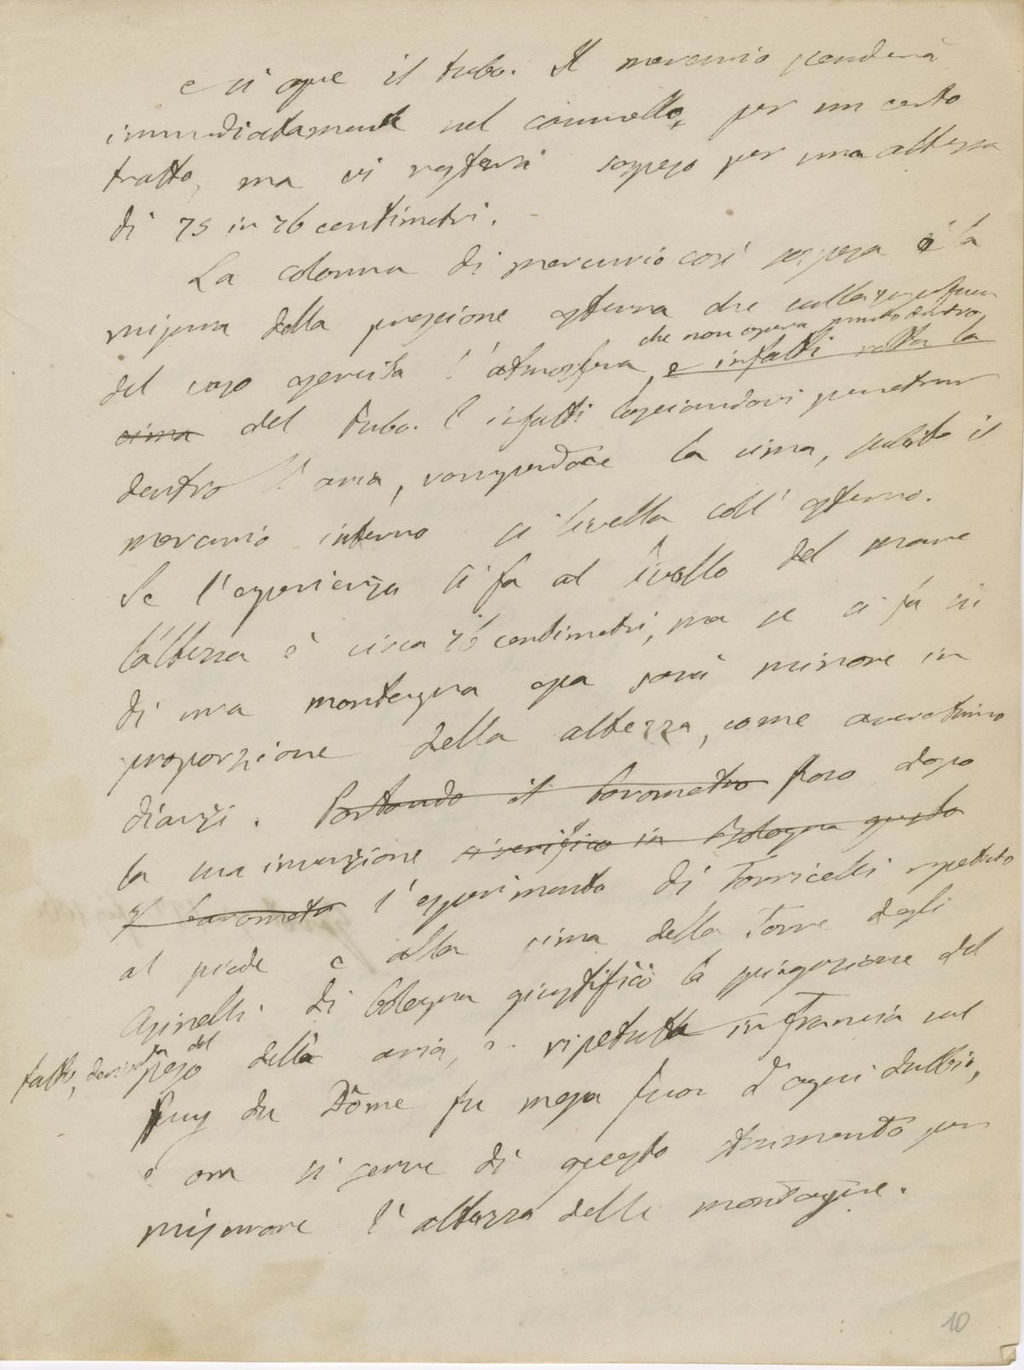 e si apre il tubo. Il mercurio scenderà
immediatamente nel cannello, per un certo
tratto, ma vi resterà sospeso per una altezza
di 75 in 76 centimetri.
La colonna di mercurio così sospesa è la
misura della pressione esterna che sulla superficie
che non opera punto dentro
del vaso esercita l'atmosfera, e infatti rotta la
cima del tubo. E infatti lasciandovi penetrare
dentro l'aria, rompendone la cima, subito il
mercurio interno si livella coll'esterno.
Se l'esperienza si fa al livello del mare
l'altezza è circa 76 centimetri, ma se si fa su
di una montagna essa sarà minore in
proporzione della altezza, come avvertimmo
dianzi. Portando il barometro Poco dopo
la sua invenzione si verificò in Bologna questo
il barometro l'esperimento di Torricelli ripetuto
al piede e alla cima della Torre degli
Asinelli di Bologna giustificò la spiegazione del
fatto, peso del della aria, e ripetuta in Francia sul
Puy du Dôme fu messa fuor d'ogni dubbio,
e ora si serve di questo strumento per
misurare l'altezza delle montagne.
10